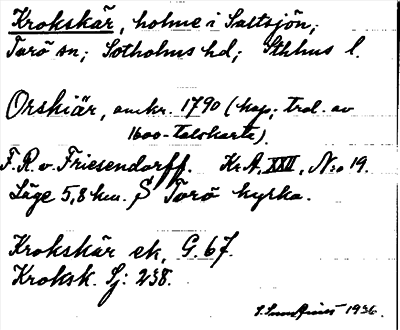 Krokskär, holme i Saltsjön;
Torö sn; Sotholms hd; Sthlms l.
Orskiär, omkr. 1790 (kop; trol. av
1600-talskarta).
F.R.v. Friesendorff. Kr.A. XXII, N:o 19.
Läge 5,8 km. S Torö kyrka.
Krokskär ek, G. 67.
Kroksk. Sj: 238.
1936.